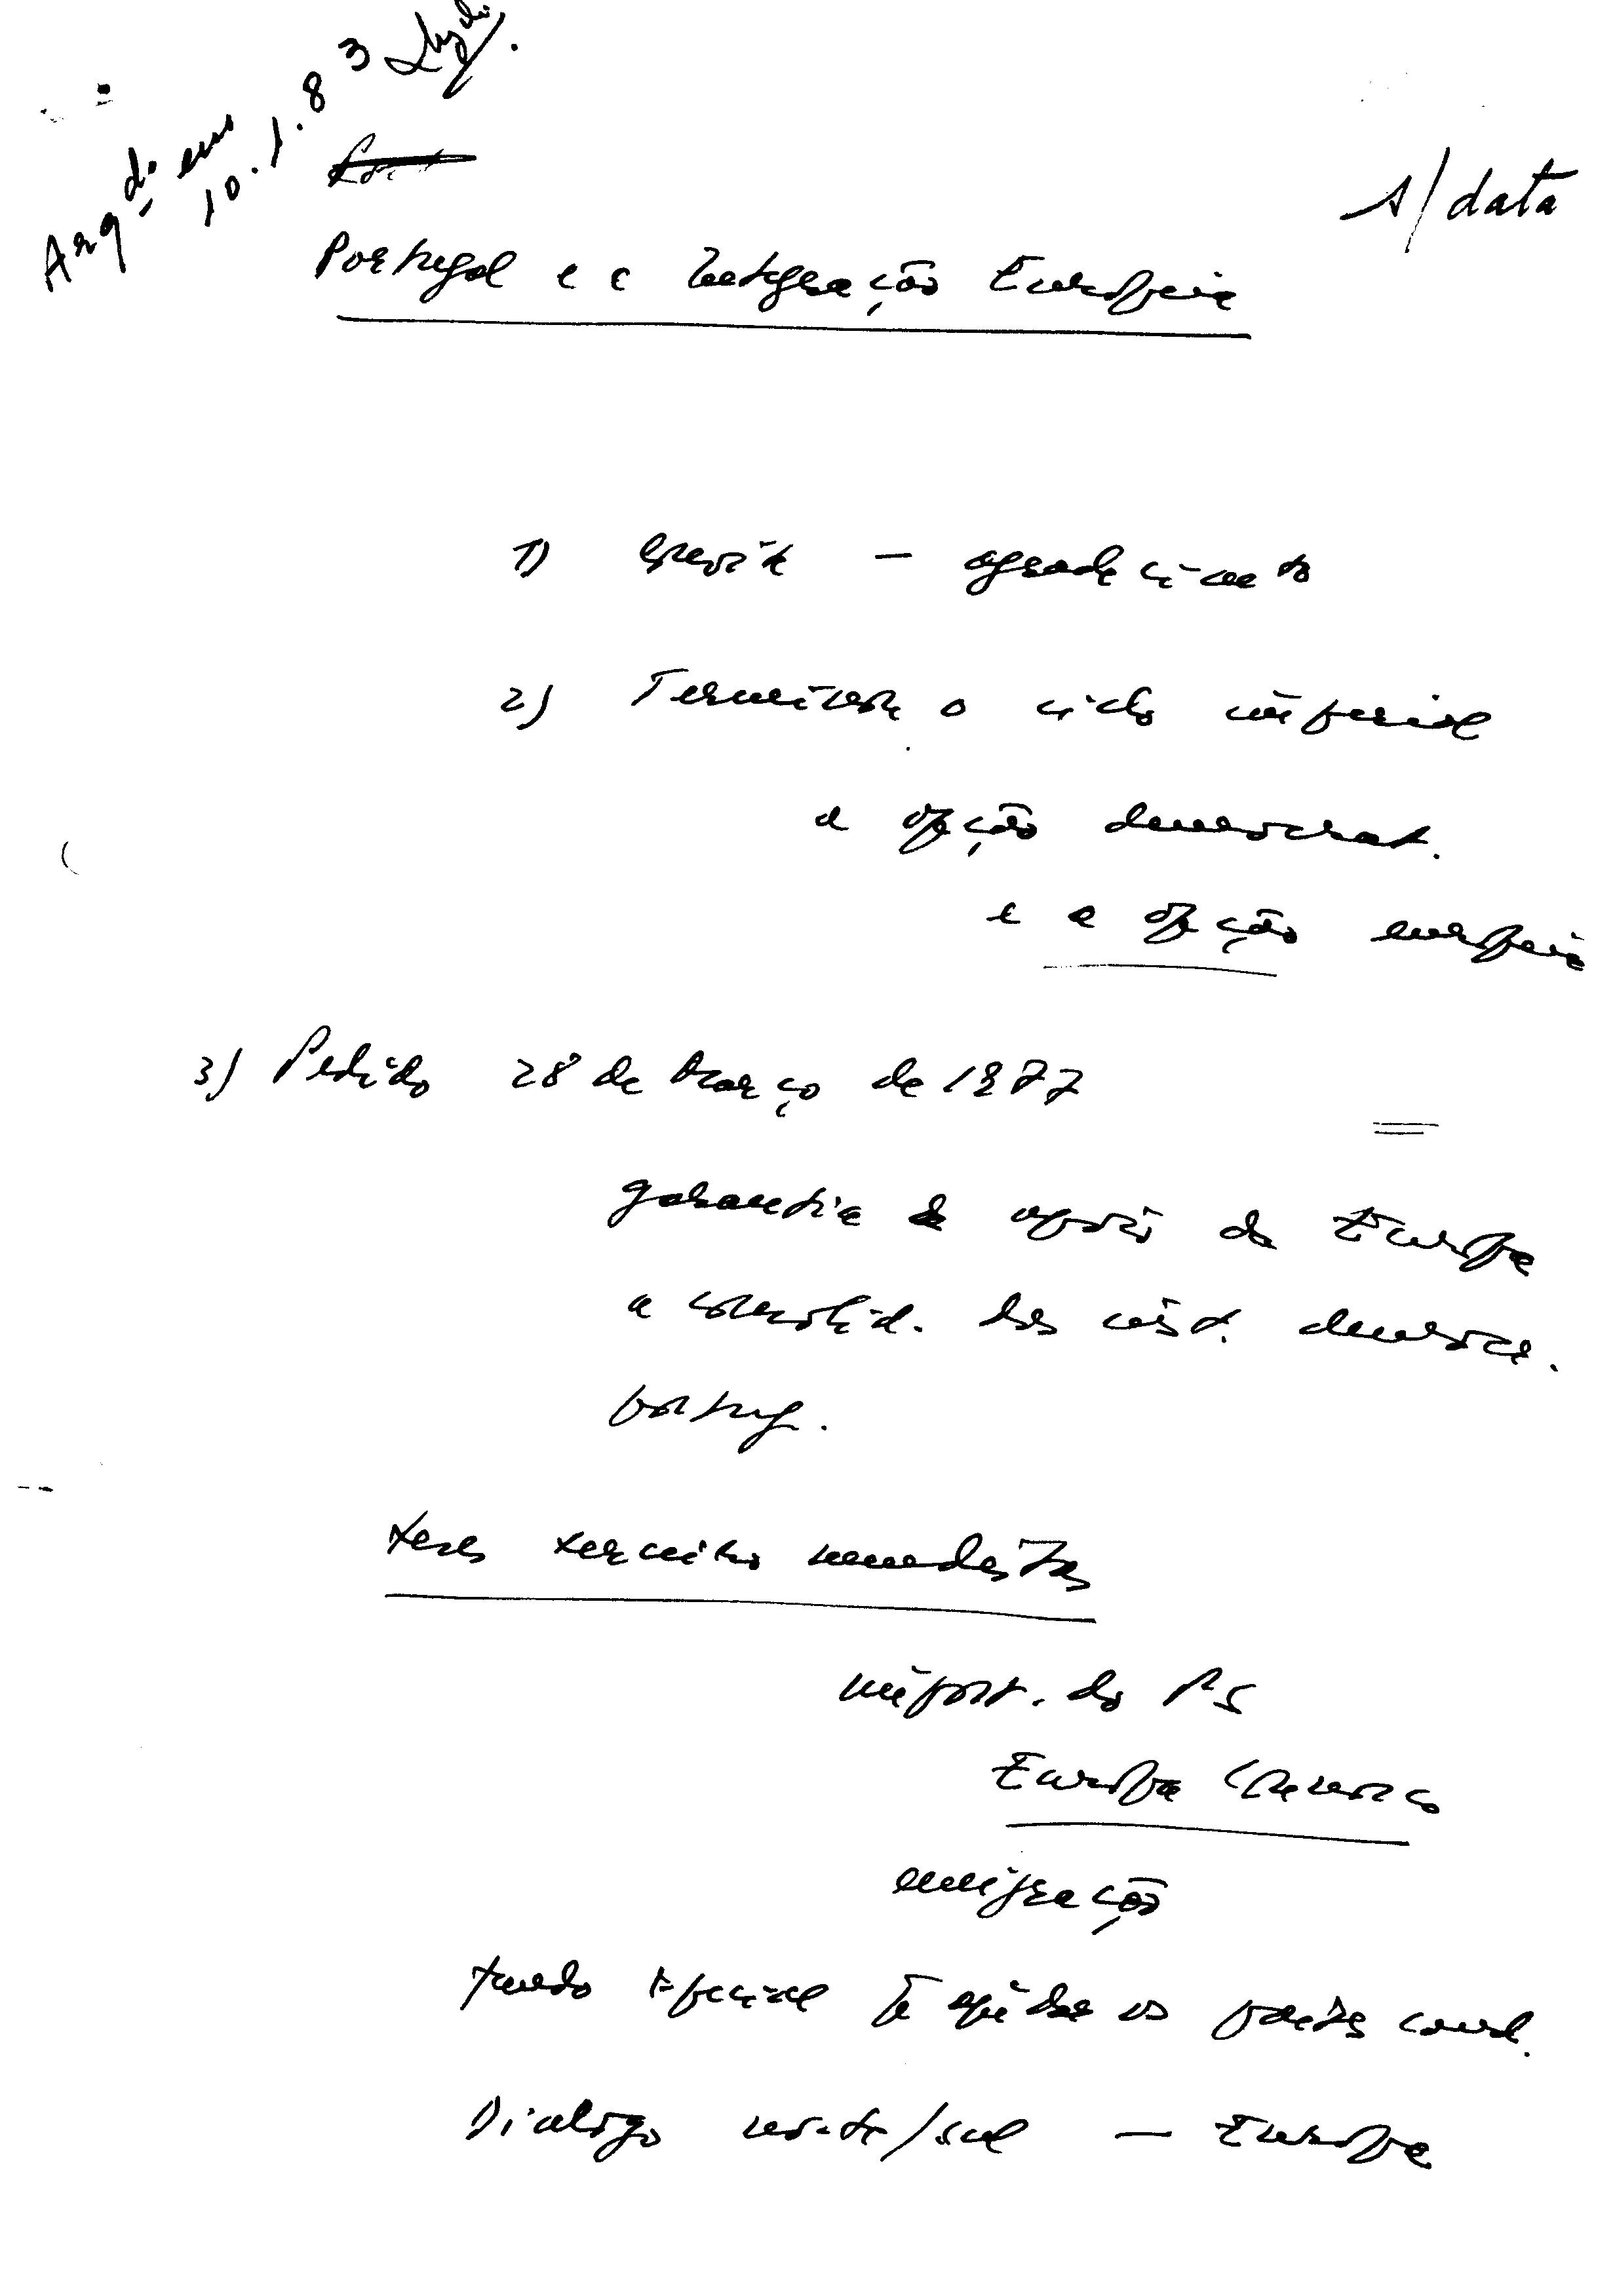 Arq.do em
10.1.83
s/data
Portugal e a Integração Europeia
1) – agradecimento
2) Terminado o ciclo imperial
a opção democrat.
e a opção europeia
3) Pedido 28 de Março de 1977
garantia de apoio da Europa
a consolid. das inst. democr.
portug.
teses terceiro mundistas
import. do PS
Europa Connosco
emigração
fundo especial p.a ajudar os países cand.
Dialogo norte/sul — Europa